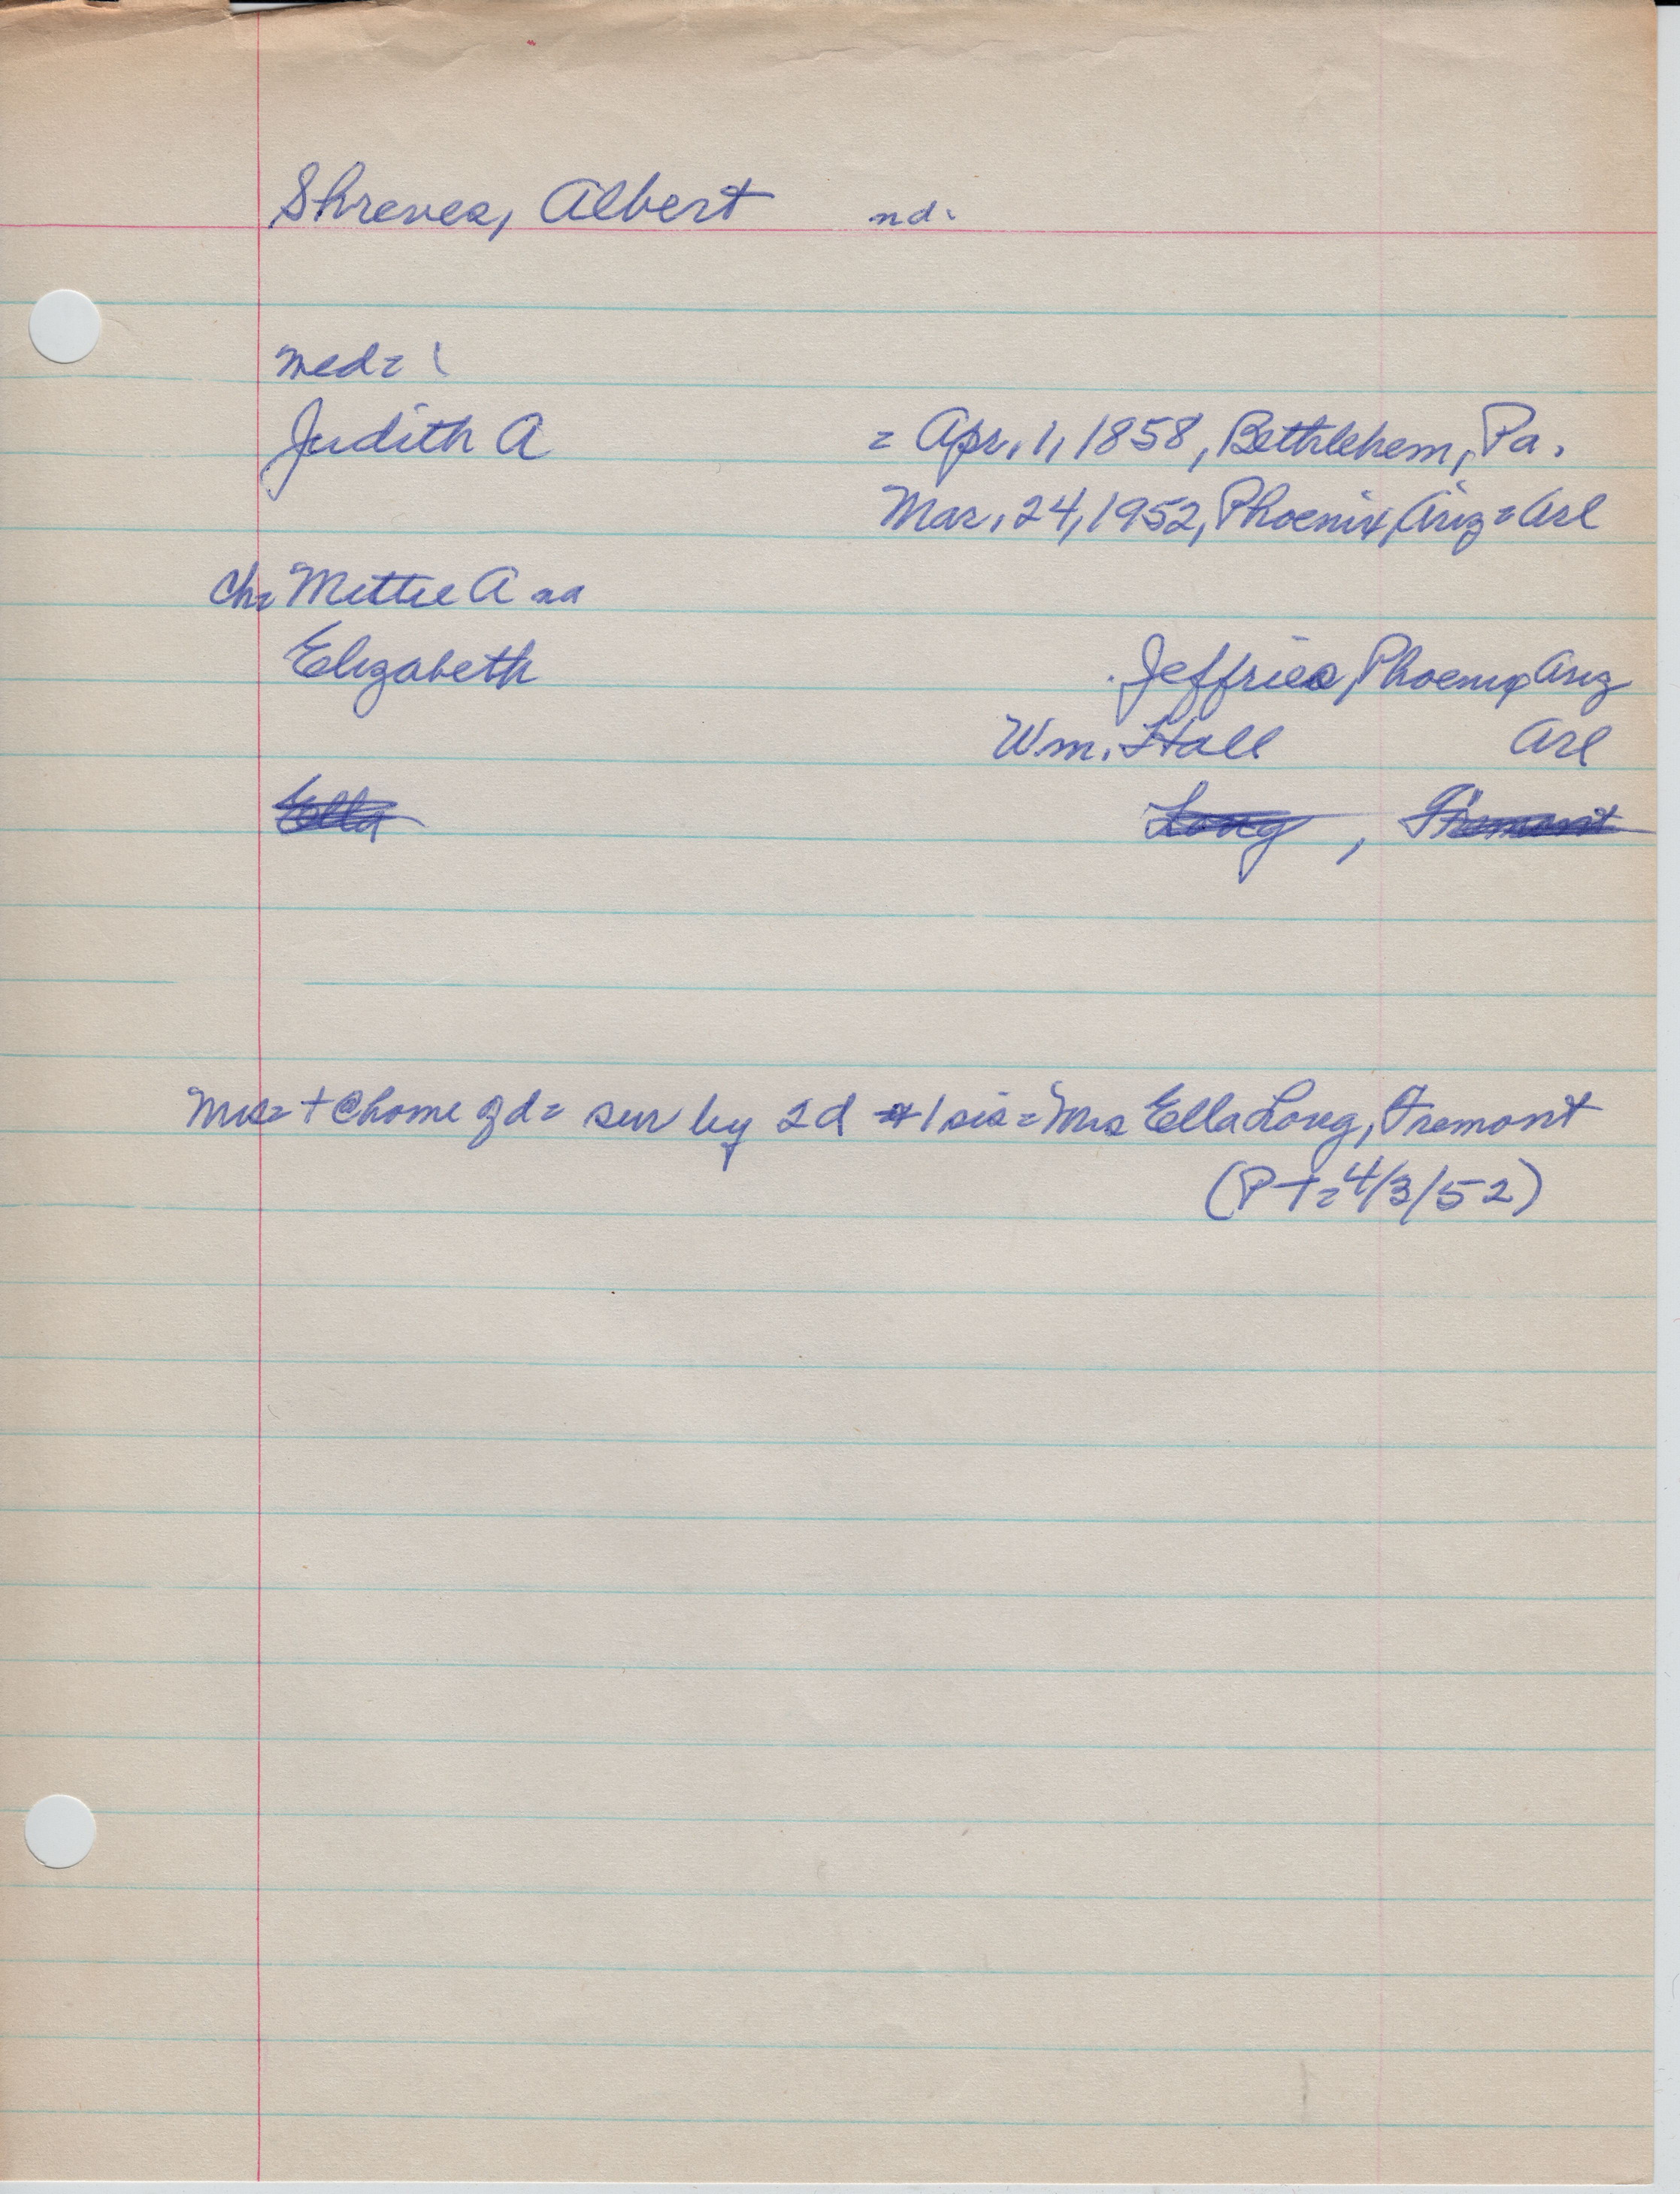 Shreves, Albert nd.
med= \
Judith A = Apr. 1, 1858, Bethlehem, Pa.
Mar. 24, 1952, Phoenix, Ariz = Arl
Ch= Mettie A na
Elizabeth Jeffries, Phoenix, Ariz
Wm. Hall Arl
Ella Long, Fremont
Mrs= + @ home of d= sur by 2 d + 1 sis = Mrs Ella Long, Fremont
(PT= 4/3/52)